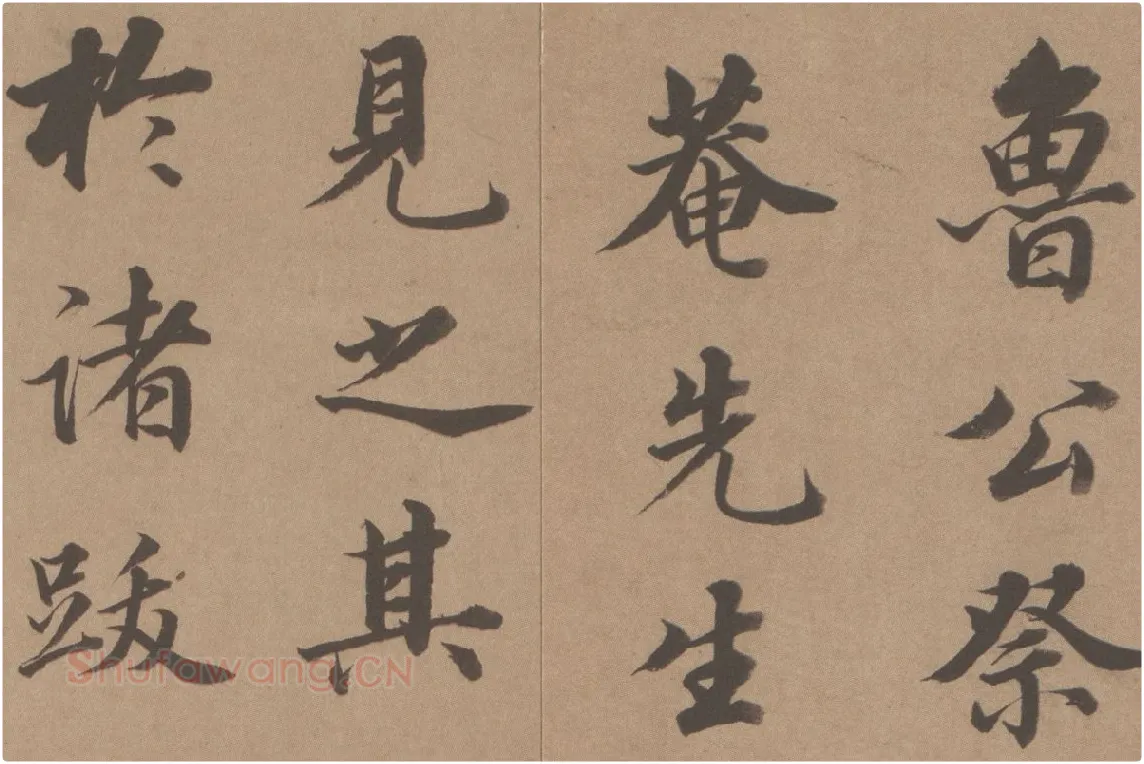 魯公祭
菴先生
見之其
於諸跋
Shufawang.CN